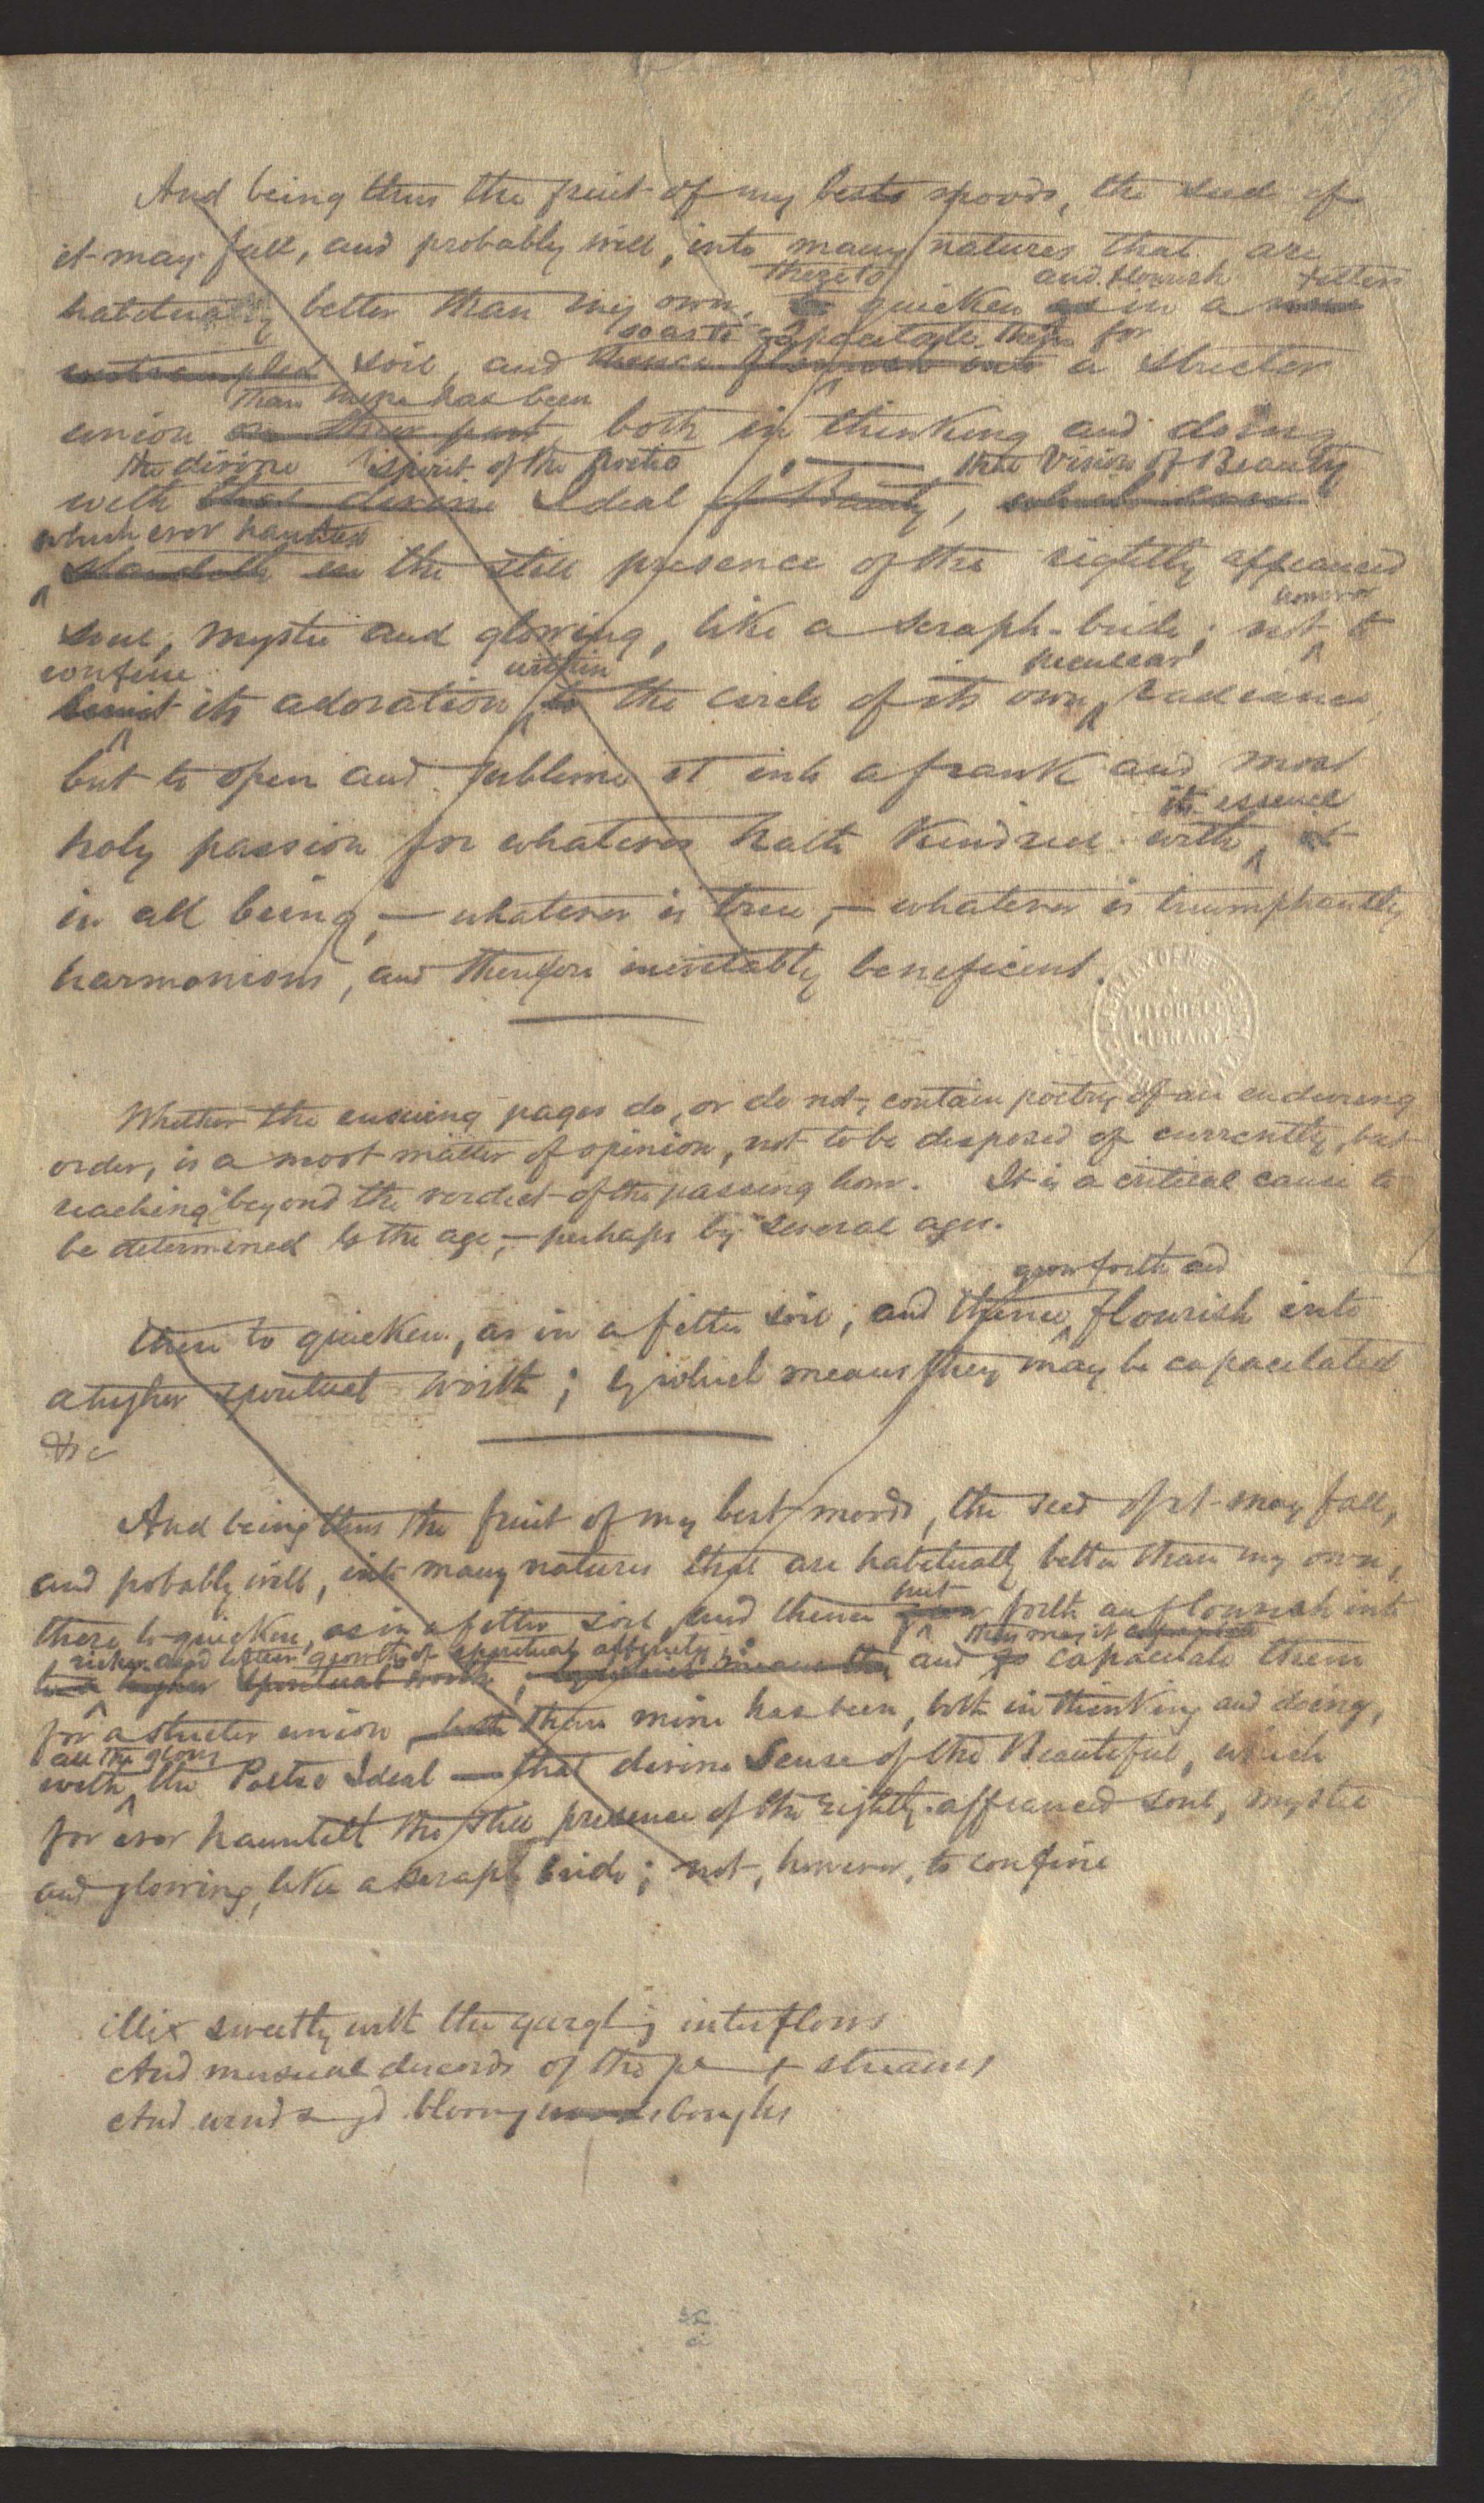 And being thus the fruit of my best moods, the seed of
it may fall, and probably will, into many natures that are
thereto and flourish fitter
habitually better than my own, to quicken as in a
so as to capacitate them for
untrampled soil, and thence flourish into a stricter
than mine has been
union on their part, both in thinking and doing
the divine spirit of the Poetic that Vision of Beauty
with that divine Ideal of Beauty, which
which ever haunteth
standeth in the still presence of the rightly affianced
however
soul, mystic and glowing, like a seraph-bride; not to
confine within peculiar
limit its adoration to the circle of its own radiance,
but to open and sublime it into a frank and most
its essence
holy passion for whatever hath kindred with it
in all being, — whatever is true, — whatever is triumphantly
harmonious, and therefore inevitably beneficent.
MITCHELL
LIBRARY
Whether the ensuing pages do, or do not, contain poetry of an enduring
order, is a moot matter of opinion, not to be disposed of currently, but
reaching beyond the verdict of the passing hour. It is a critical cause to
be determined by the age, — perhaps by several ages.
grow forth and
there to quicken, as in a fitter soil, and thence flourish into
a higher spiritual worth; by which means they may be capacitated
&c
And being thus the fruit of my best moods, the seed of it may fall,
and probably will, into many natures that are habitually better than my own,
put
there to quicken, as in a fitter soil, and thence grow forth and flourish into
richer and loftier growths of spiritual affinity; thus may it
to a higher spiritual worth; by which means they and so capacitate them
for a stricter union, both than mine has been, both in thinking and doing,
all the glory
with the Poetic Ideal — that divine Sense of the Beautiful, which
for ever haunteth the still presence of the rightly-affianced soul, mystic
and glowing, like a seraph bride; not, however, to confine
Mix sweetly with the gurgling interflows
And musical discords of the streams
And blooming woods boughs